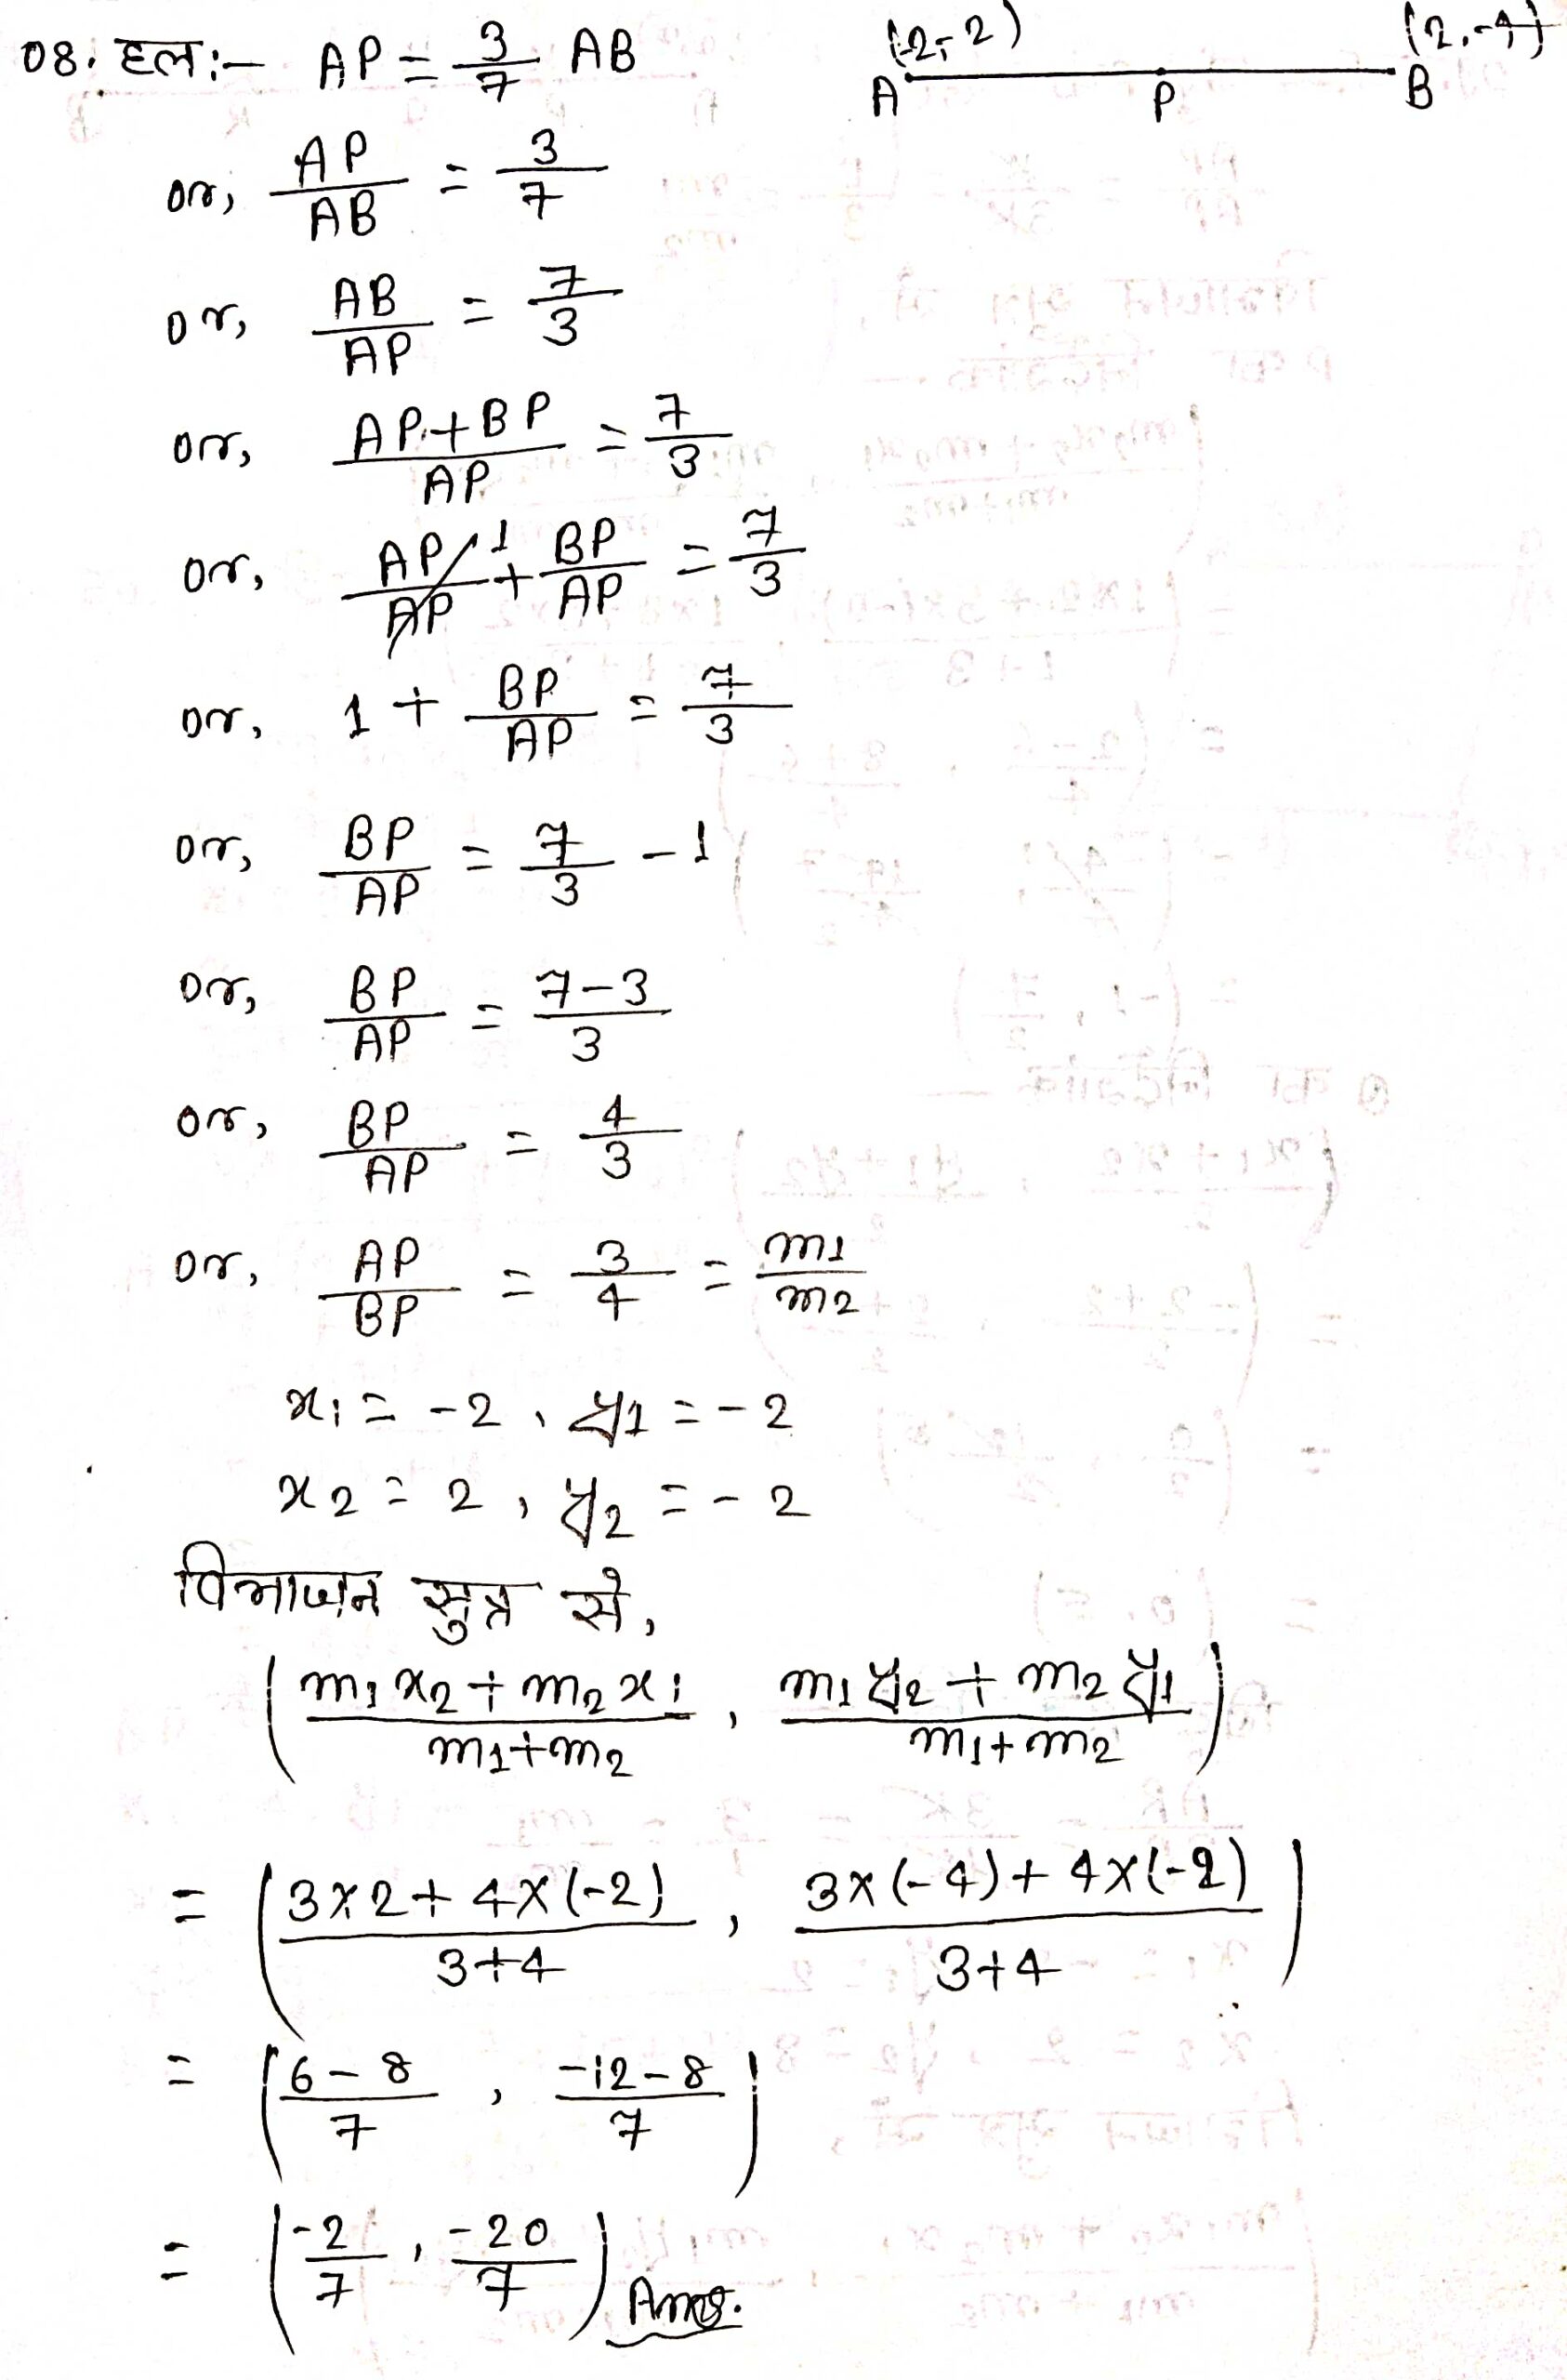 08. हल:- AP = 3/7 AB
(-2,-2) (2,-4)
A P B
or, AP/AB = 3/7
or, AB/AP = 7/3
or, AP+BP/AP = 7/3
or, AP/AP 1 + BP/AP = 7/3
or, 1 + BP/AP = 7/3
or, BP/AP = 7/3 - 1
or, BP/AP = 7-3/3
or, BP/AP = 4/3
or, AP/BP = 3/4 = m1/m2
x1 = -2, y1 = -2
x2 = 2, y2 = -2
विभाजन सुत्र से,
(m1x2+m2x1/m1+m2, m1y2+m2y1/m1+m2)
= (3×2+4×(-2)/3+4, 3×(-4)+4×(-2)/3+4)
= (6-8/7, -12-8/7)
= (-2/7, -20/7) Ans.